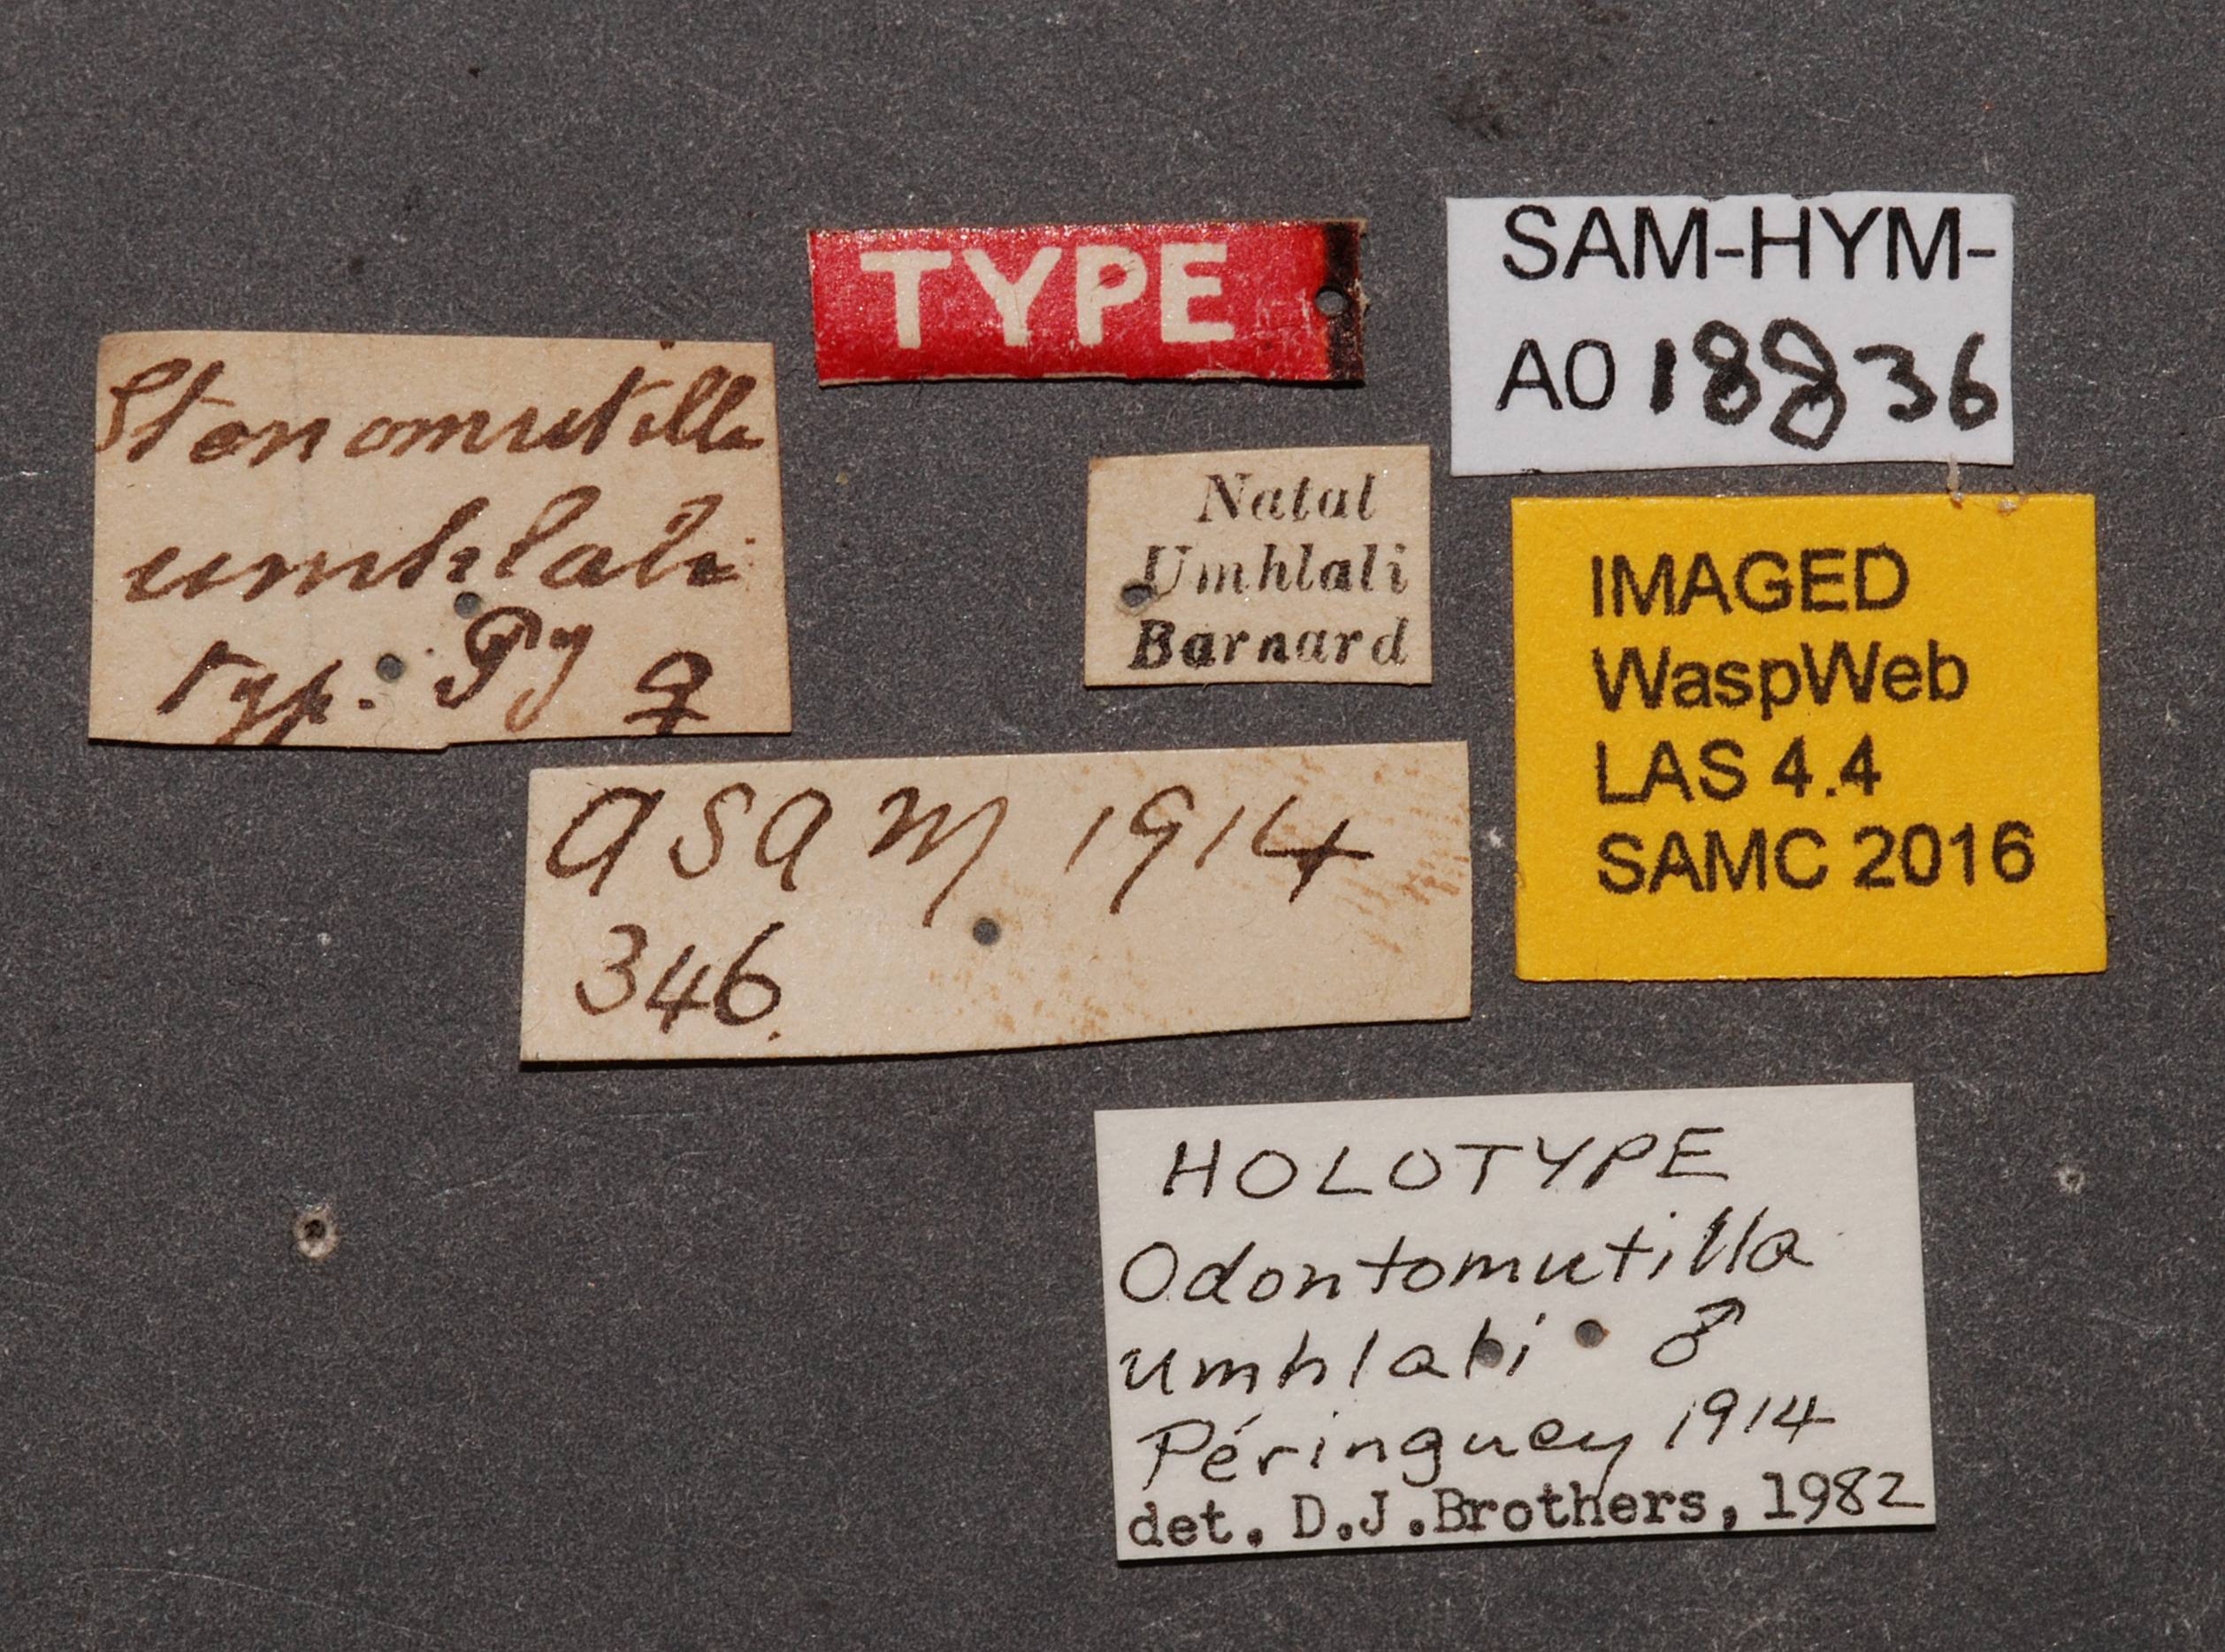 TYPE
SAM-HYM-
A018836
Stenomutilla
umhlali
Typ. Py ♀
Natal
Umhlali
Barnard
IMAGED
WaspWeb
LAS 4.4
SAMC 2016
ASAM 1914
346.
HOLOTYPE
Odontomutilla
umhlali ♂
Péringuey 1914
det. D.J.Brothers, 1982